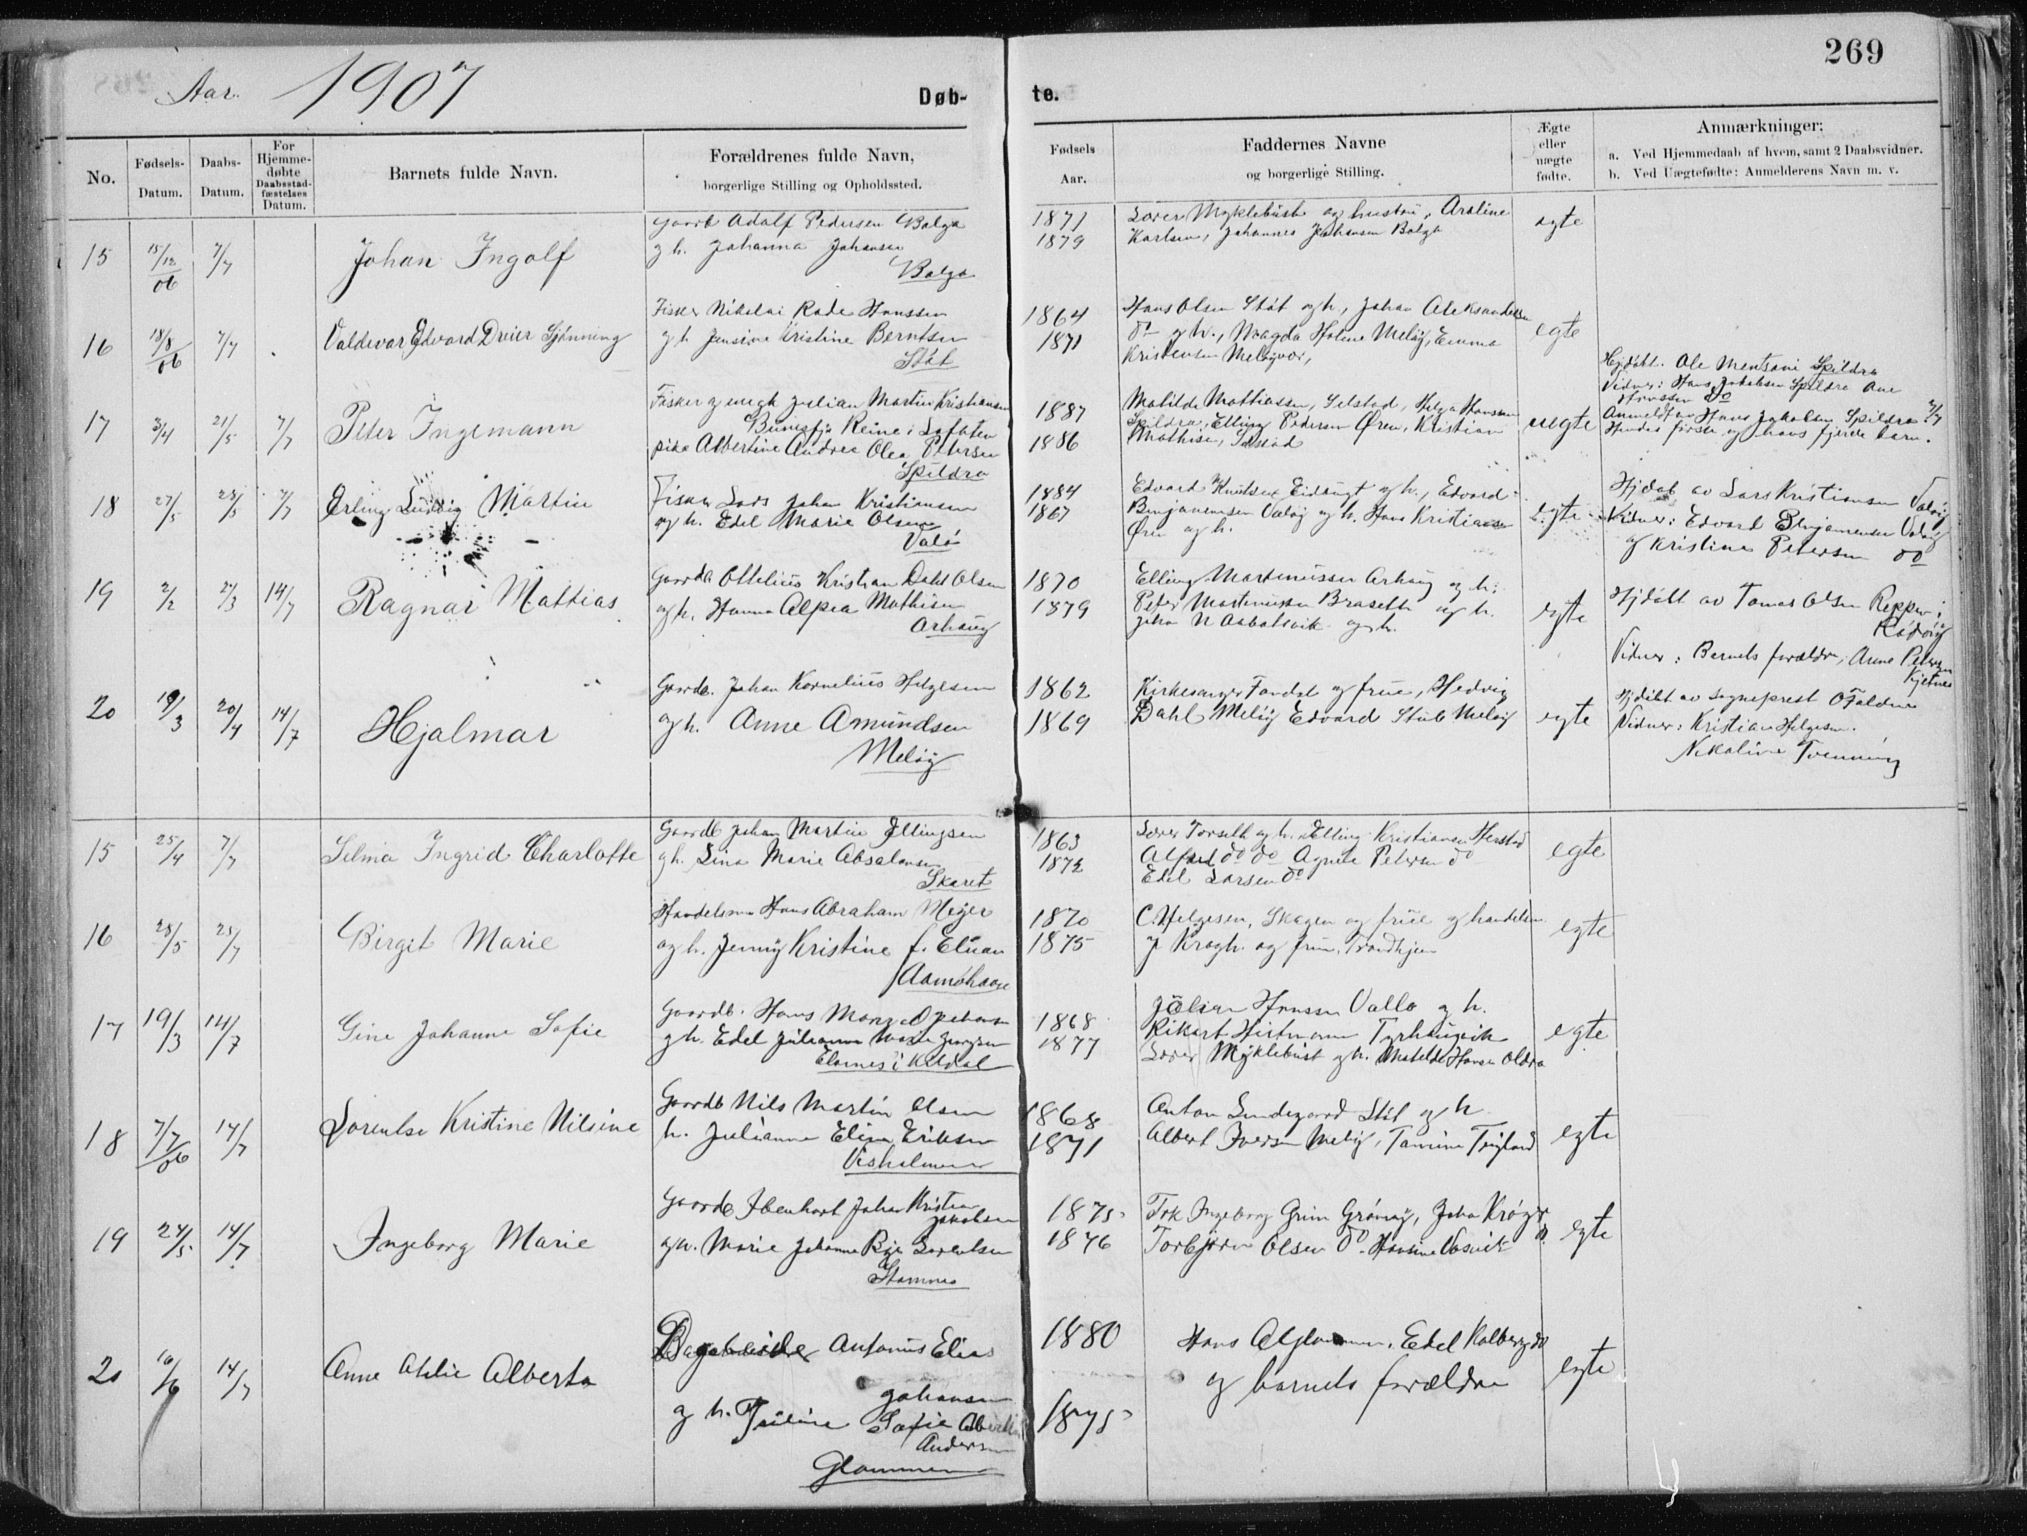 269
Aar. 1907
Døb- te.
No.
Fødsels-
Datum.
Daabs-
Datum.
For
Hjemme-
døbte
Daabsstad-
fæstelses
Datum.
Barnets fulde Navn.
Forældrenes fulde Navn,
borgerlige Stilling og Opholdssted.
Fødsels
Aar.
Faddernes Navne
og borgerlige Stilling.
Ægte
eller
uægte
fødte.
Anmærkninger:
a. Ved Hjemmedaab af hvem, samt 2 Daabsvidner.
b. Ved Uægtefødte: Anmelderens Navn m. v.
15 15/12 06 7/7 Johan Ingolf
Gaardb Adolf Pedersen Bolga
g h. Johanna Johansen
Bolga
1871
1879
Lærer Myklebust og hustru,
Karlsen, Johannes Johansen Bolga
egte
16 18/8 06 7/7 Valdevar Edvard Dvier Sjønning
Fisker Nikolai Rode Hanssen
g h Jensine Kristine Berntsen
Støt
1864
1871
Hans Olsen Støt og h., Johan Aleksandersen
do og h., Magda Holene Meløy, Emma
Kristensen Meløyvær,
egte
17 3/4 21/5 7/7 Peter Ingemann
Fisker g ungk Julian Martin Kristiansen
Reine i Lofoten
pike Albertine Andrea Olea Petersen
Spildra
1887
1886
Matilde Mathiassen, Selstad, Helga Hanssen
Spildra, Elling Pedersen Øren, Kristian
Mathisen, Selstad
uegte
Hjdøbt. Ole Mentsoni Spildra
Vidner: Hans Jakobsen Spildra Ane
Hanssen do
Anmeldt av Hans Jakobsen Spildra 7/7
Hendes første og hans fjerde barn.
18 27/5 28/5 7/7 Erling Ludvig Martin
Fisker Lars Johan Kristiansen
og h. Edel Marie Olsen
Valø
1884
1867
Edvard Knutsen Eidbugt og h., Edvard
Benjaminsen Valøy og h. Hans Kristiansen
Øren og h.
egte
Hjdøb av Lars Kristiansen Valøy
Vidner: Edvard Benjaminsen Valøy
og Kristine Petersen do
19 2/2 2/3 14/7 Ragnar Mattias
Gaardb Ottelius Kristian Dahl Olsen
og h. Hanna Alpea Mathisen
Arhaug
1870
1879
Elling Martinussen Arhaug og h.
Peter Martinussen Braseth og h.
Johan N Aabotsvik og h.
egte
Hjdøbt av Tomas Olsen Reppen,
Rødøy
Vidner: Barnets forældre, Anne Petersen
Kjelnes
20 19/3 20/4 14/7 Hjalmar
Gaardb. Johan Kornelius Helgesen
og h. Anne Amundsen
Meløy
1862
1869
Kirkesanger Fondal og frue, Hedvig
Dahl Meløy Edvard Stub Meløy
egte
Hjdøbt av sogneprest O Falden
Vidner: Kristian Helgesen.
Nikoline Tvenning
15 25/4 7/7 Selma Ingrid Charlotte
Gaardb Johan Martin Ellingsen
g h. Lina Marie Absalonsen
Skaret
1863
1872
Lærer Torseth og h. Elling Kristiansen Herstad
Alfred do do Agnete Petersen do
Edel Larsen do
egte
16 28/5 21/7 Birgit Marie
Handelsm Hans Abraham Meyer
og h. Jenny Kristine f. Eliran
Aamøhavn
1870
1875
C. Helgesen, Skagen og frue g handelsm
J. Krogh og frue, Trondhjem
egte
17 19/3 14/7 Gine Johanne Sofie
Gaardb. Hans Johansen
g h. Edel Julianna Jørgsen
1868
1877
Julian Hanssen Valla g h.
Rikart Heitmann Tyrhaugvik
Lærer Myklebust g h. Matelde Hansen Oldra
egte
18 7/7 06 14/7 Lorentse Kristine Nilsine
Gaardb Nils Martin Olsen
h. Julianna Elisa Eriksen
Vesholmen
1868
1871
Anton Lundegaard Støt og h
Albert Iversen Meløy, Tomine
egte
19 24/5 14/7 Ingeborg Marie
Gaardb Ibenhart Johan Kristian
Jakobsen
og h. Marie Johanna Lorentsen
Stamnes
1875
1876
Frk Ingeborg Grim Grønøy, Johan Krøger
Torbjørn Olsen do Hansine Vasvik
egte
20 10/6 14/7 Anne Otelie Alberta
Antonius Elias
Johansen
g h. Sofie
Andersen
Glommen
1880
1875
Hans Glommen, Edel Kolberg do
og barnets forældre
egte